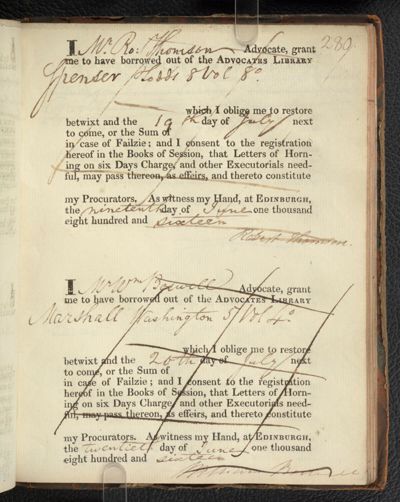 289.
I Mr. Ro: Thomson Advocate, grant
me to have borrowed out of the ADVOCATES LIBRARY
Spenser 8 Vol 8o.
which I oblige me to restore
betwixt and the 19th day of July next
to come, or the Sum of
in case of Failzie; and I consent to the registration
hereof in the Books of Session, that Letters of Horn-
ing on six Days Charge, and other Executorials need-
ful, may pass thereon, as effeirs, and thereto constitute
my Procurators. As witness my Hand, at EDINBURGH,
the nineteenth day of June one thousand
eight hundred and sixteen
Robert Thomson.
I Mr Wm Boswell Advocate, grant
me to have borrowed out of the ADVOCATES LIBRARY
Marshall Washington 5 Vol 4o.
which I oblige me to restore
betwixt and the 20th day of July next
to come, or the Sum of
in case of Failzie; and I consent to the registration
hereof in the Books of Session, that Letters of Horn-
ing on six Days Charge, and other Executorials need-
ful, may pass thereon, as effeirs, and thereto constitute
my Procurators. As witness my Hand, at EDINBURGH,
the twentieth day of June one thousand
eight hundred and sixteen